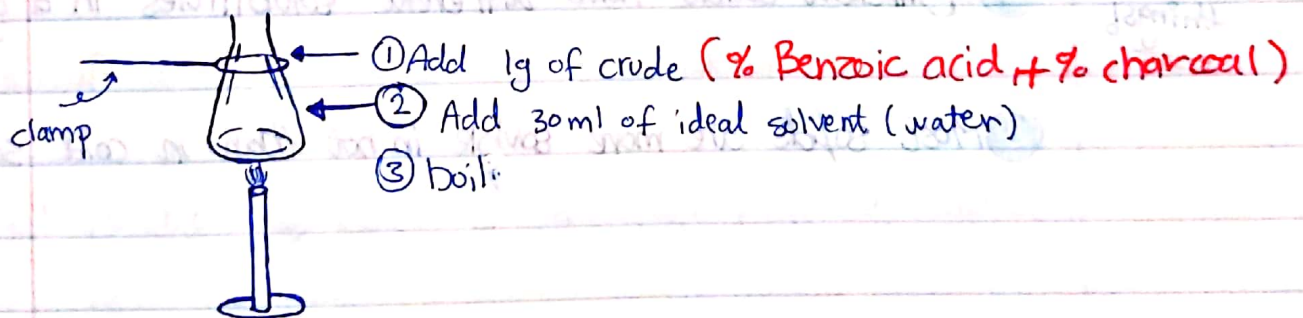 ① Add 1g of crude (% Benzoic acid + % charcoal)
clamp
② Add 30ml of ideal solvent (water)
③ boil.